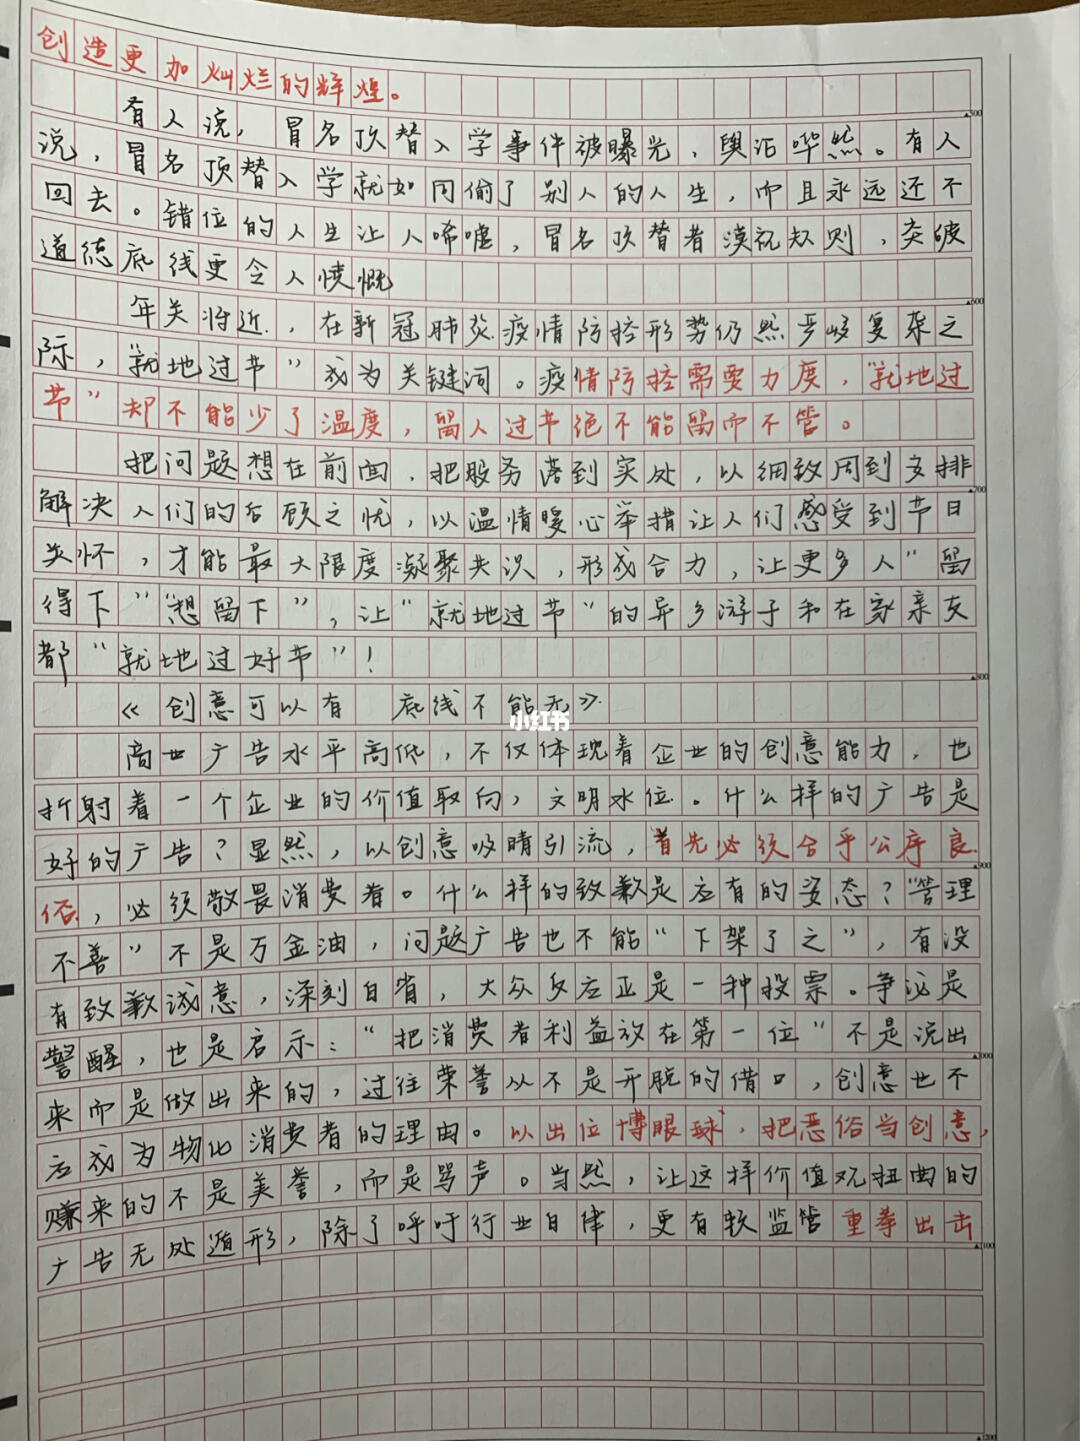 创造更加灿烂的辉煌。
有人说，冒名顶替入学事件被曝光，舆论哗然。有人
说，冒名顶替入学就如同偷了别人的人生，而且永远还不
回去。错位的人生让人唏嘘，冒名顶替者漠视规则，突破
道德底线更令人愤慨
年关将近，在新冠肺炎疫情防控形势仍然严峻复杂之
际，“就地过节”成为关键词。疫情防控需要力度，“就地过
节”却不能少了温度，留人过节绝不能留而不管。
把问题想在前面，把服务落到实处，以细致周到安排
解决人们的后顾之忧，以温情暖心举措让人们感受到节日
关怀，才能最大限度凝聚共识，形成合力，让更多人“留
得下”“想留下”，让“就地过节”的异乡游子和在家亲友
都“就地过好节”！
《创意可以有 底线不能无》
商业广告水平高低，不仅体现着企业的创意能力，也
折射着一个企业的价值取向，文明水位。什么样的广告是
好的广告？显然，以创意吸睛引流，首先必须合乎公序良
俗，必须敬畏消费者。什么样的致歉是应有的姿态？“管理
不善”不是万金油，问题广告也不能“下架了之”，有没
有致歉诚意，深刻自省，大众反应正是一种投票。争议是
警醒，也是启示：“把消费者利益放在第一位”不是说出
来而是做出来的，过往荣誉从不是开脱的借口，创意也不
应成为物化消费者的理由。以出位博眼球，把恶俗当创意，
赚来的不是美誉，而是骂声。当然，让这样价值观扭曲的
广告无处遁形，除了呼吁行业自律，更有软监管重拳出击
小红书